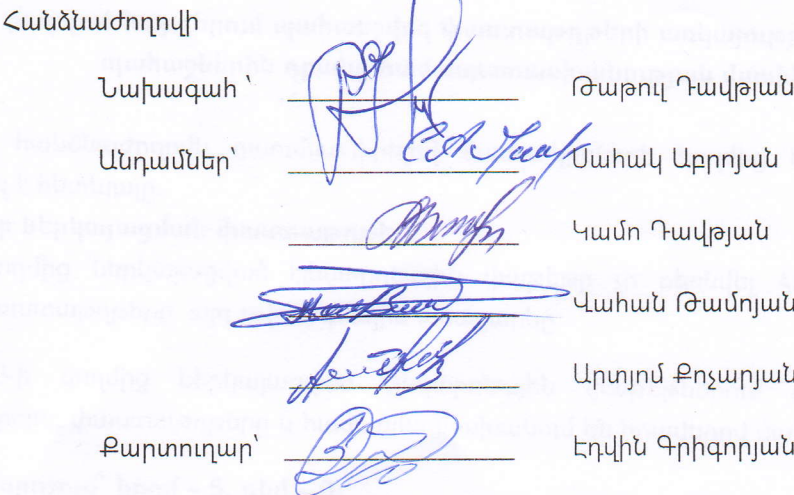 Հանձնաժողովի
Նախագահ ՝ Թաթուլ Դավթյան
Անդամներ՝ Սահակ Աբրոյան
Կամո Դավթյան
Վահան Թամոյան
Արտյոմ Քոչարյան
Քարտուղար՝ Էդվին Գրիգորյան